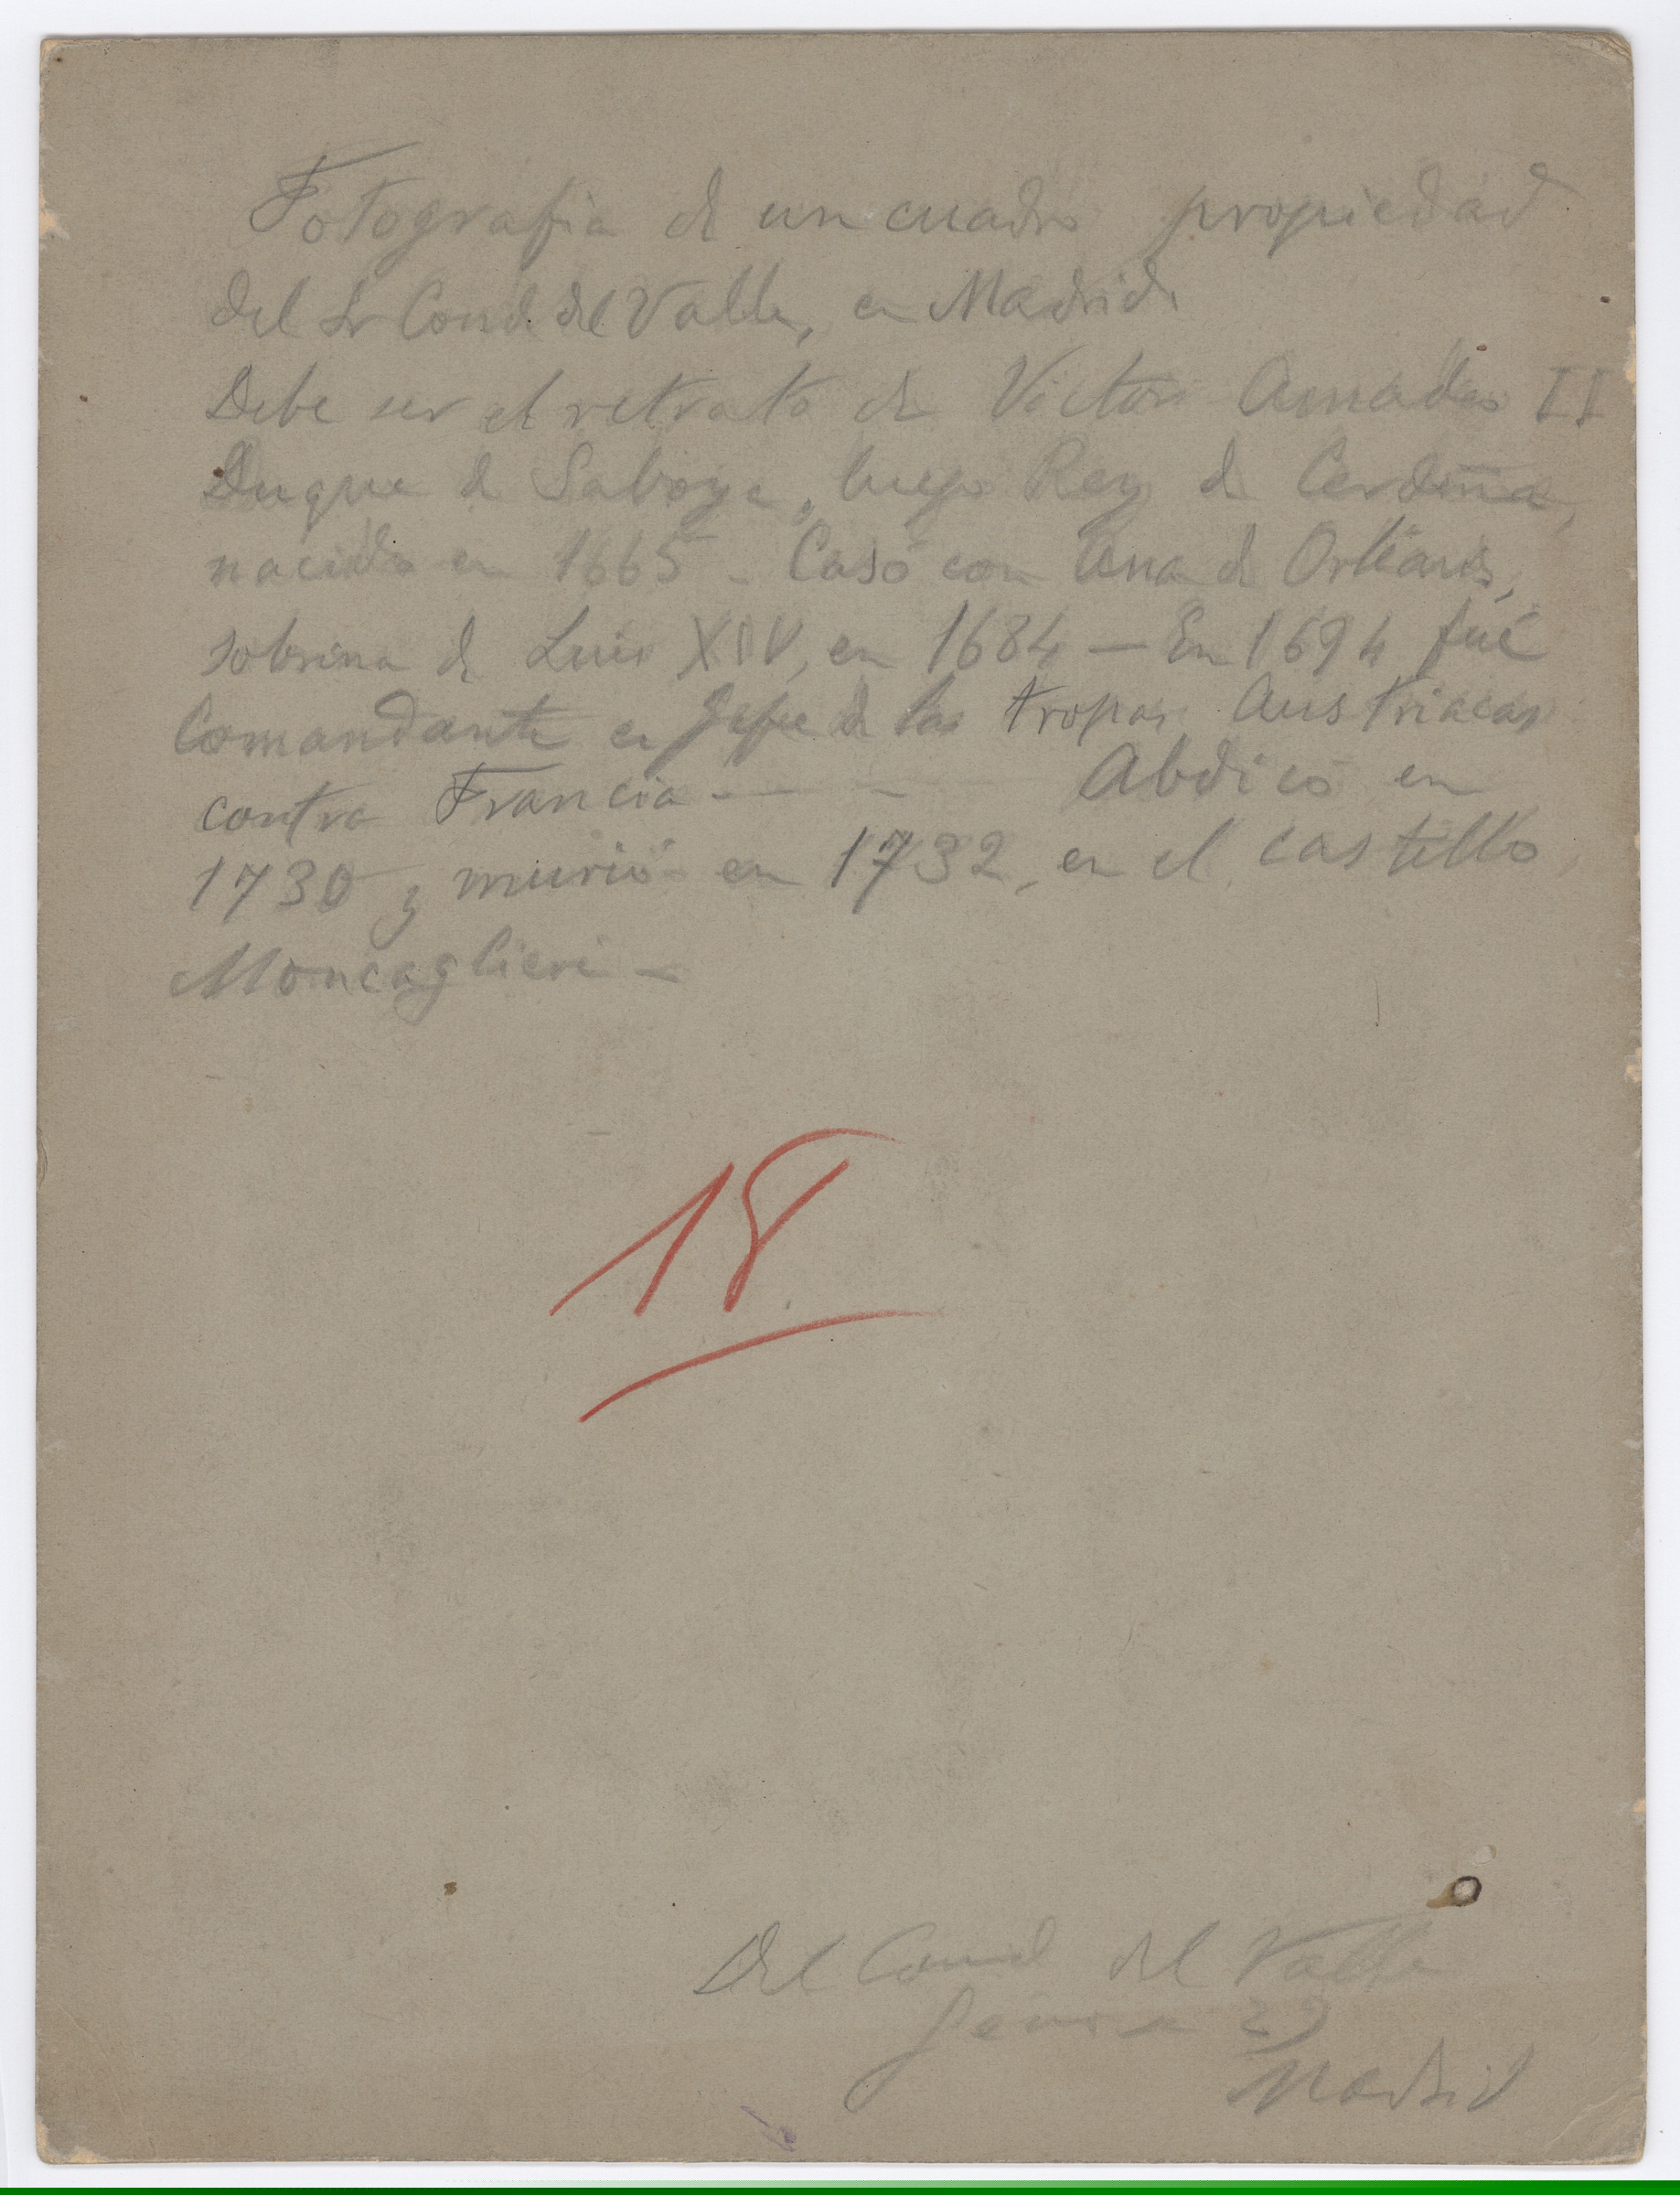 Fotografia de un cuadro propiedad
del Sr Conde del Valle, en Madrid.
Debe ser el retrato de Victor Amadeo II
Duque de Saboya, luego Rey de Cerdeña,
nacido en 1665 - Casó con Ana de Orléans,
sobrina de Luis XIV, en 1684 — En 1694 fué
Comandante en Jefe de las tropas Austriacas
contra Francia - — - Abdicó en
1730 y murió en 1732, en el castillo
Moncaglieri —
18
Del Conde del Valle
Génova 29
Madrid